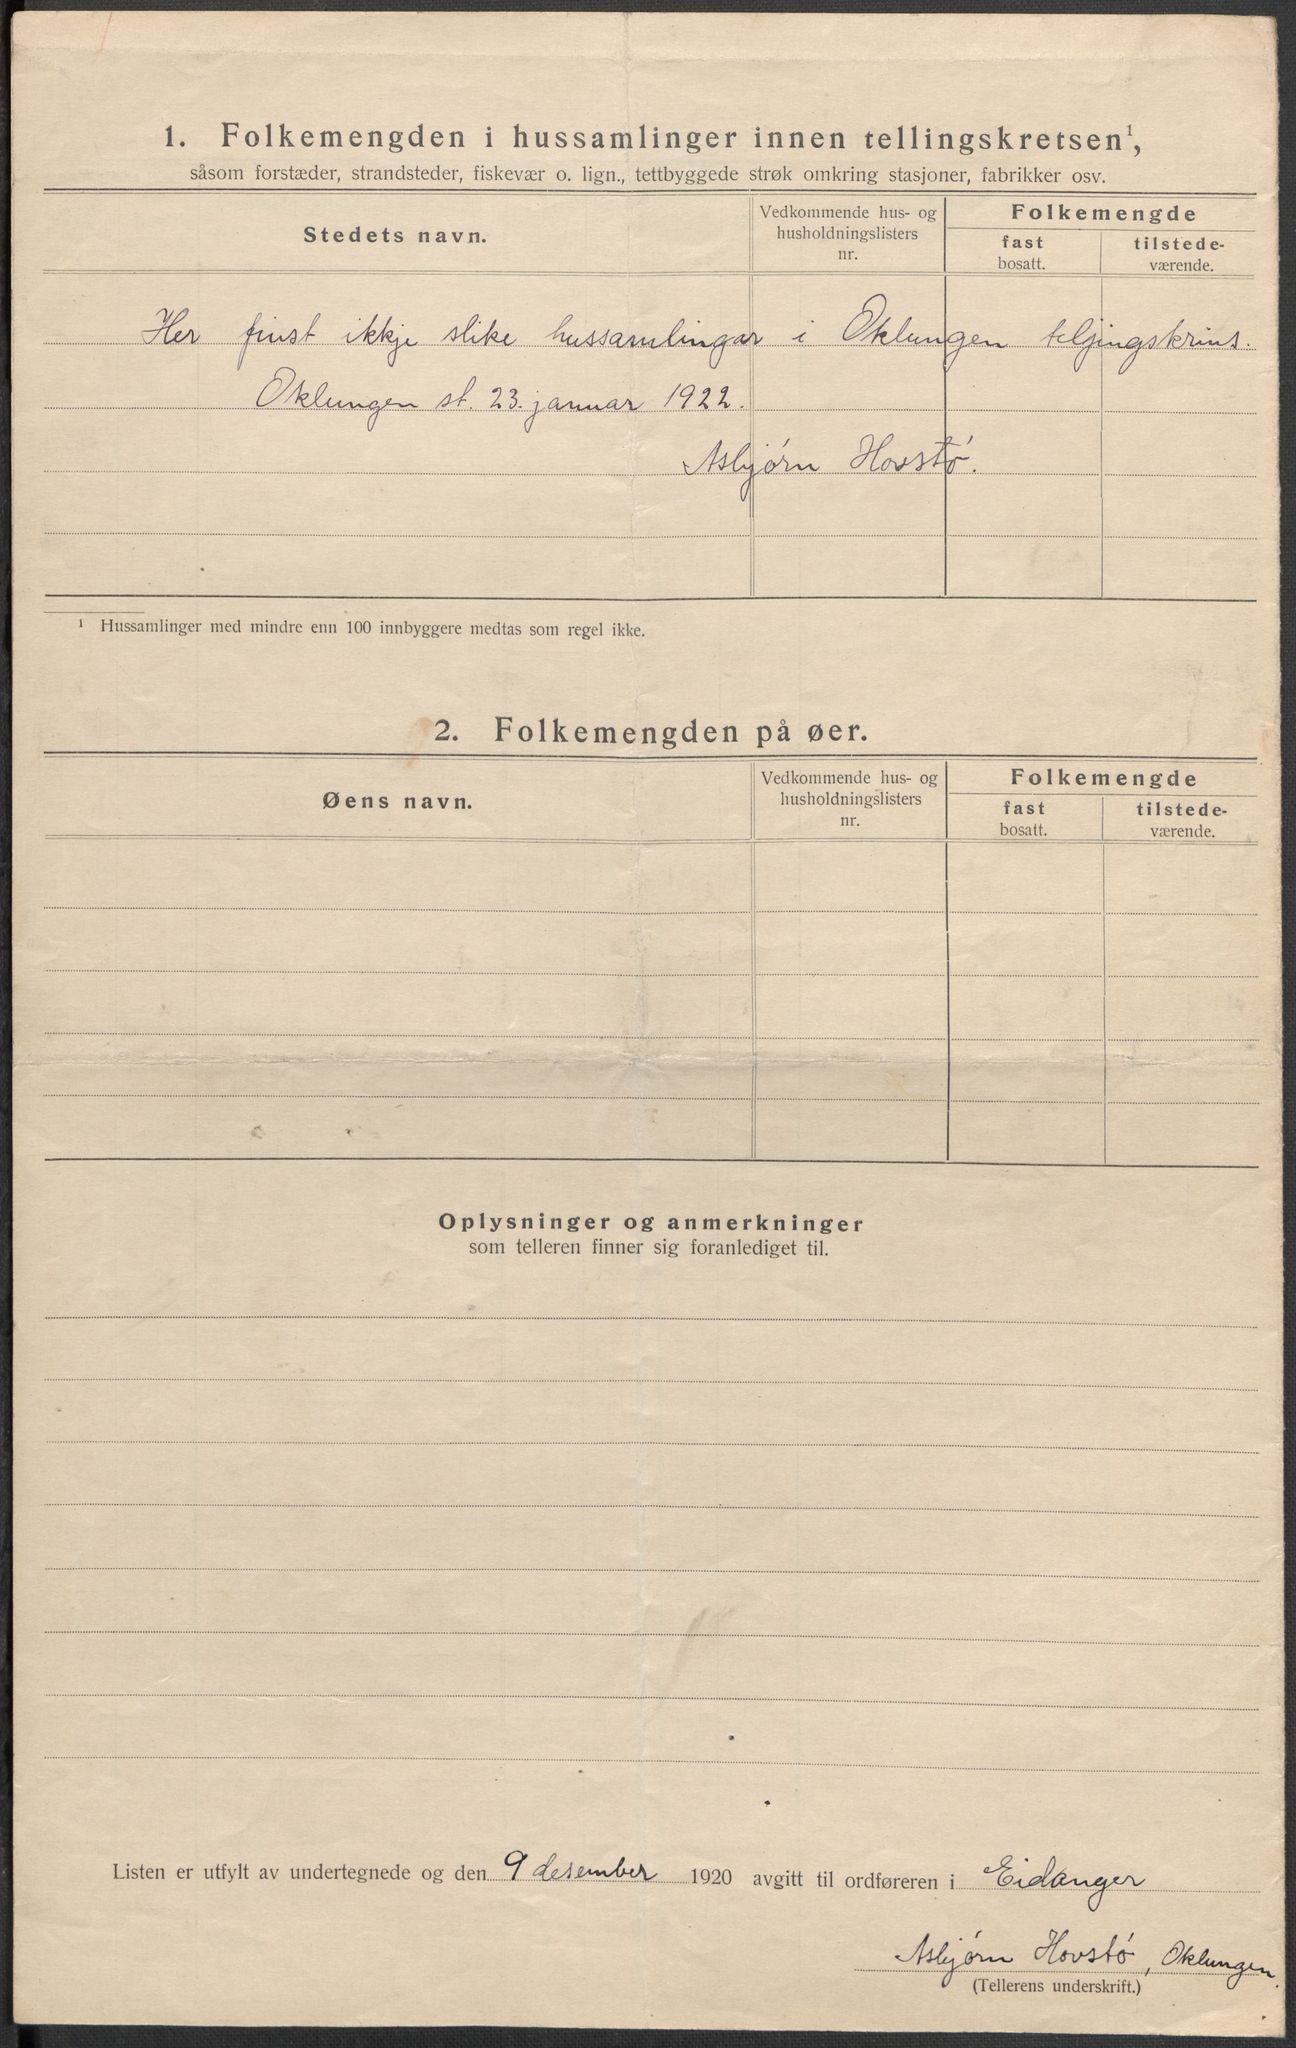 1. Folkemengden i hussamlinger innen tellingskretsen¹,
såsom forstæder, strandsteder, fiskevær o. lign., tettbyggede strøk omkring stasjoner, fabrikker osv.
Stedets navn.
Vedkommende hus- og
husholdningslisters
nr.
Folkemengde
fast
bosatt.
tilstede-
værende.
Her finst ikkje slike hussamlingar i Oklungen teljingskrins.
Oklungen st. 23. januar 1922.
Asbjørn Hovstø.
¹ Hussamlinger med mindre enn 100 innbyggere medtas som regel ikke.
2. Folkemengden på øer.
Øens navn.
Vedkommende hus- og
husholdningslisters
nr.
Folkemengde
fast
bosatt.
tilstede-
værende.
Oplysninger og anmerkninger
som telleren finner sig foranlediget til.
Listen er utfylt av undertegnede og den 9 desember 1920 avgitt til ordføreren i Eidanger
Asbjørn Hovstø, Oklungen.
(Tellerens underskrift.)